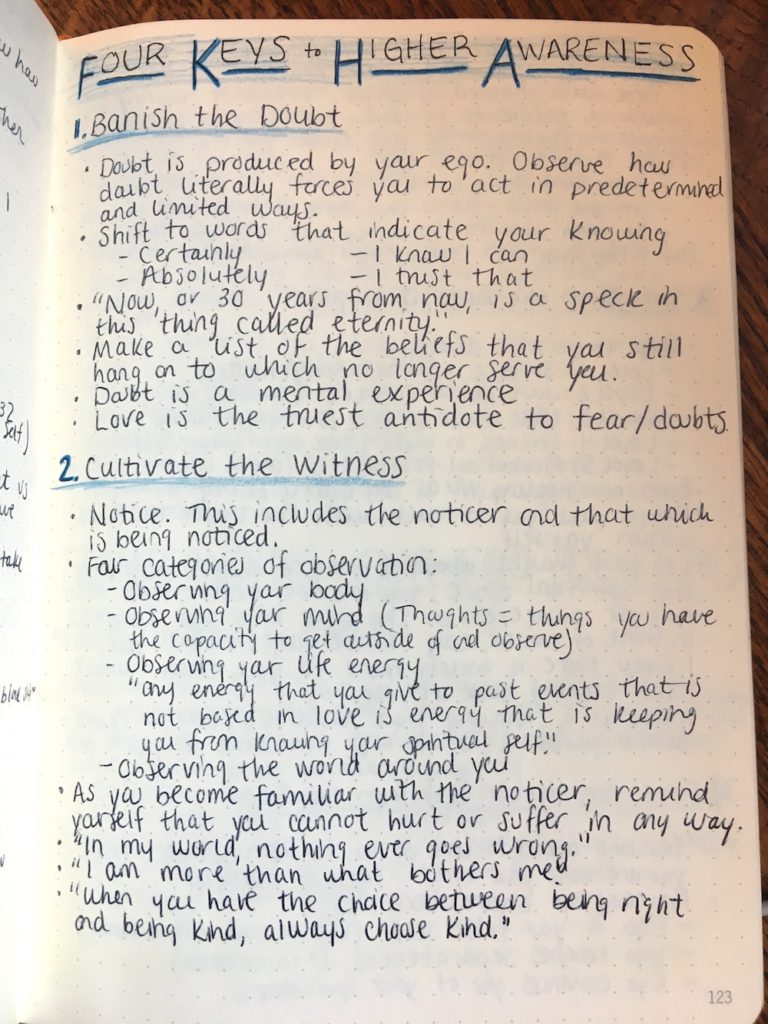 FOUR KEYS to HIGHER AWARENESS
1. Banish the Doubt
• Doubt is produced by your ego. Observe how
doubt literally forces you to act in predetermined
and limited ways.
• Shift to words that indicate your Knowing
- Certainly - I know I can
- Absolutely - I trust that
• "Now, or 30 years from now, is a speck in
this thing called eternity."
• Make a list of the beliefs that you still
hang on to which no longer serve you.
• Doubt is a mental experience
• Love is the truest antidote to fear/doubts
2. Cultivate the Witness
• Notice. This includes the noticer and that which
is being noticed.
• Four categories of observation:
- Observing your body
- Observing your mind (Thoughts = things you have
the capacity to get outside of and observe)
- Observing your life energy
"any energy that you give to past events that is
not based in love is energy that is keeping
you from knowing your spiritual self."
- Observing the world around you
• As you become familiar with the noticer, remind
yourself that you cannot hurt or suffer in any way.
• "In my world, nothing ever goes wrong."
• "I am more than what bothers me."
• "When you have the choice between being right
and being kind, always choose kind."
123